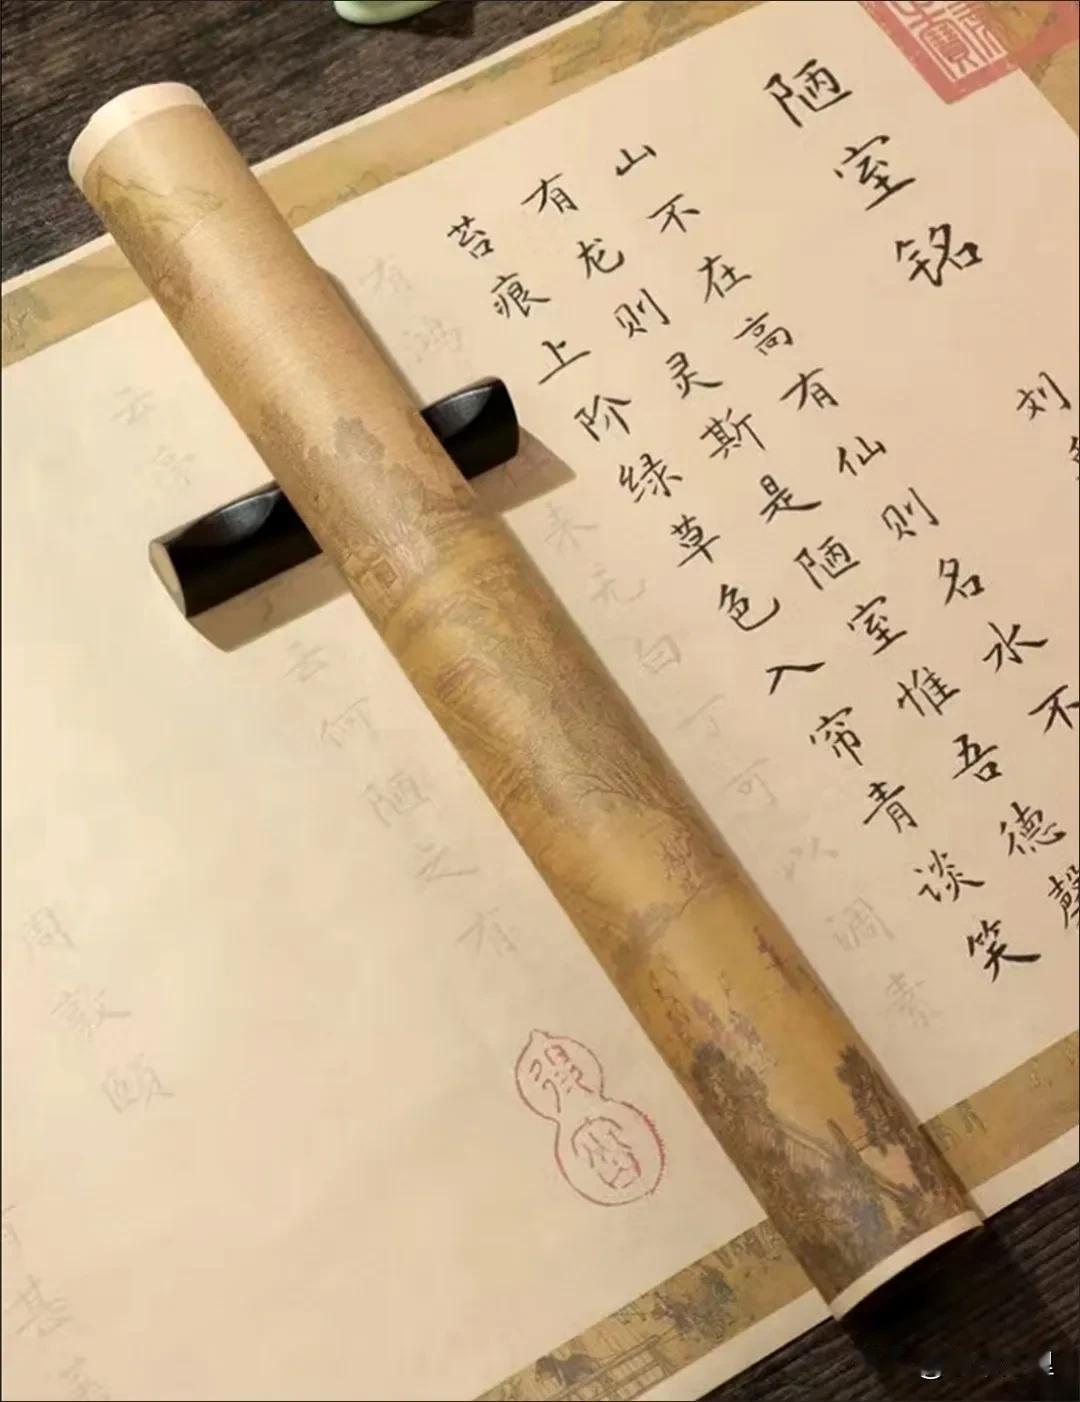 陋室铭
刘
山不在高有仙则名水不
有龙则灵斯是陋室惟吾德馨
苔痕上阶绿草色入帘青谈笑
有鸿 来无白丁可以调素
云亭 云何陋之有
周敦颐
甚